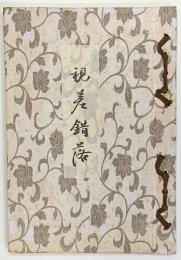 視差錯落